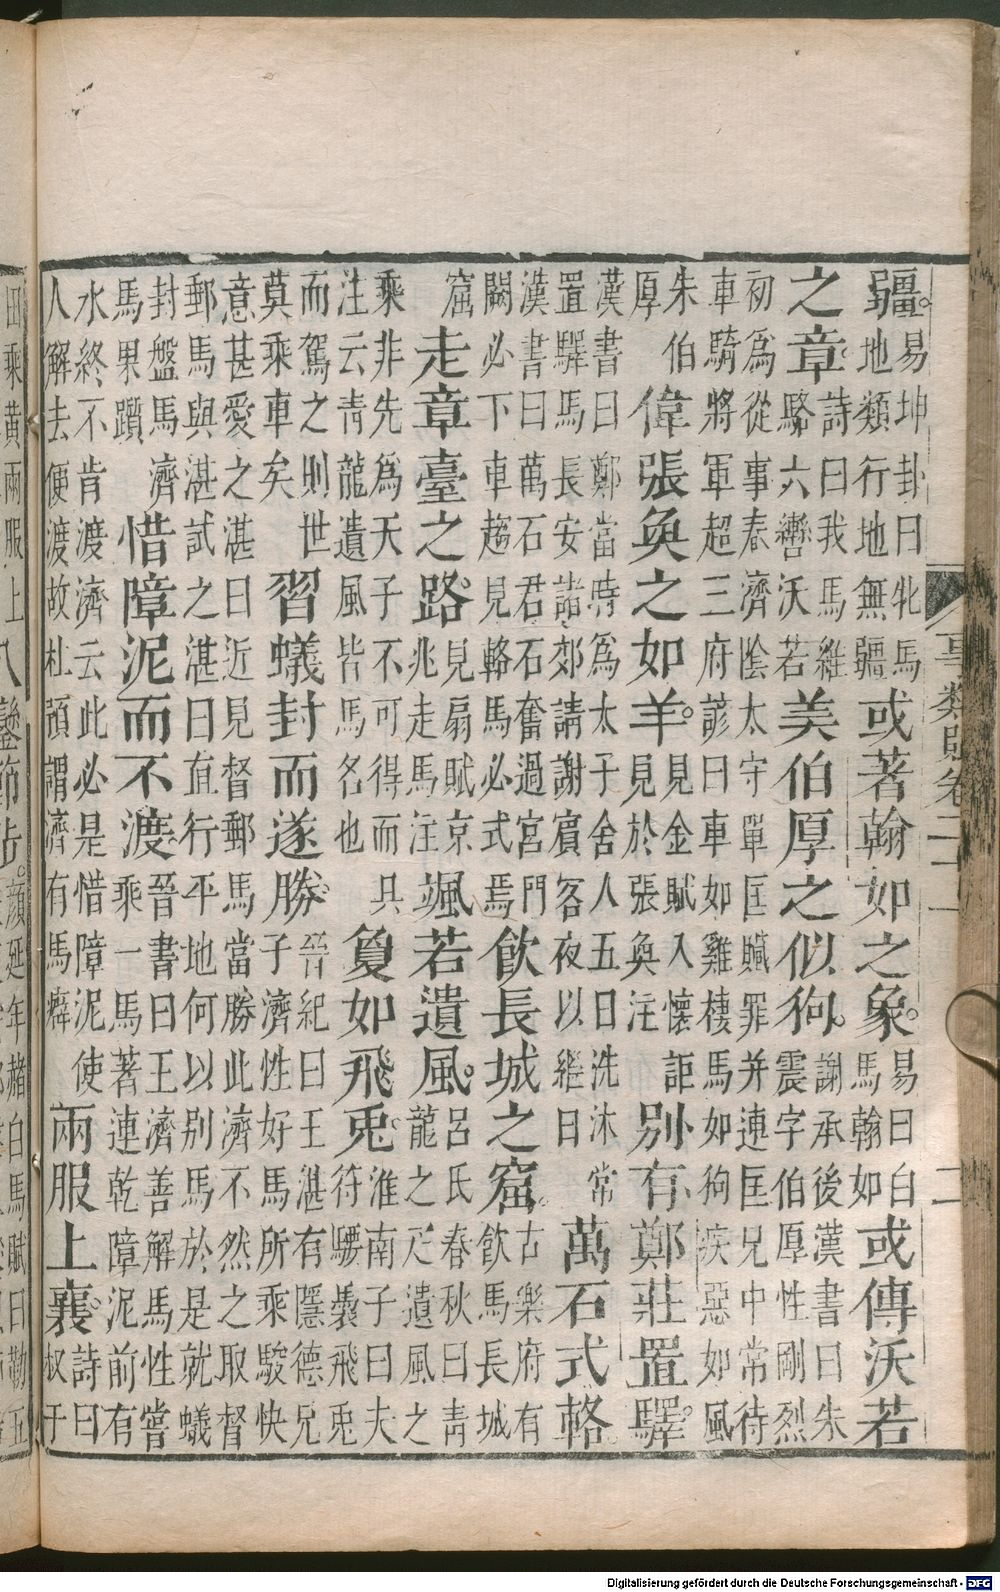 疆。易坤卦曰牝馬
地類行地無疆
或著翰如之象。易曰白
馬翰如
或傳沃若
之章詩曰我馬維
駱六轡沃若
美伯厚之似狗。謝承後漢書曰朱
震字伯厚性剛烈
初為從事春濟陰太守單匡贓罪并連匡兄中常待
車騎將軍超三府諺曰車如雞棲馬如狗疾惡如風
朱伯
厚
偉張奐之如羊。見金賦入懷詎
見於張奐注
別有鄭莊置驛。
漢書曰鄭當時為太子舍人五日洗沐常
置驛馬長安諸郊請謝賓客夜以繼日
萬石式輅。
漢書曰萬石君石奮過宮門
闕必下車趨見輅馬必式焉
飲長城之窟。古樂府有
飲馬長城
窟
走章臺之路。見扇賦京
兆走馬注
颯若遺風。呂氏春秋曰青
龍之疋遺風之
乘非先為天子不可得而具
注云青龍遺風皆馬名也
敻如飛兔。淮南子曰夫
符騕褭飛兔
而駕之則世
莫乘車矣
習蟻封而遂勝。晉紀曰王湛有隱德兄
子濟性好馬所乘駿快
意甚愛之湛曰近見督郵馬當勝此濟不然之取督
郵馬與湛試之湛曰直行平地何以別馬於是就蟻
封盤馬濟
馬果躓
惜障泥而不渡晉書曰王濟善解馬性嘗
乘一馬著連乾障泥前有
水終不肯渡濟云此必是惜障泥使
人解去便渡故杜預謂濟有馬癖
兩服上襄。詩曰
叔于
田乘黃兩服上
八鑾節步。顏延年赭白馬賦曰勒五
事類賦卷二十一
Digitalisierung gefördert durch die Deutsche Forschungsgemeinschaft - DFG